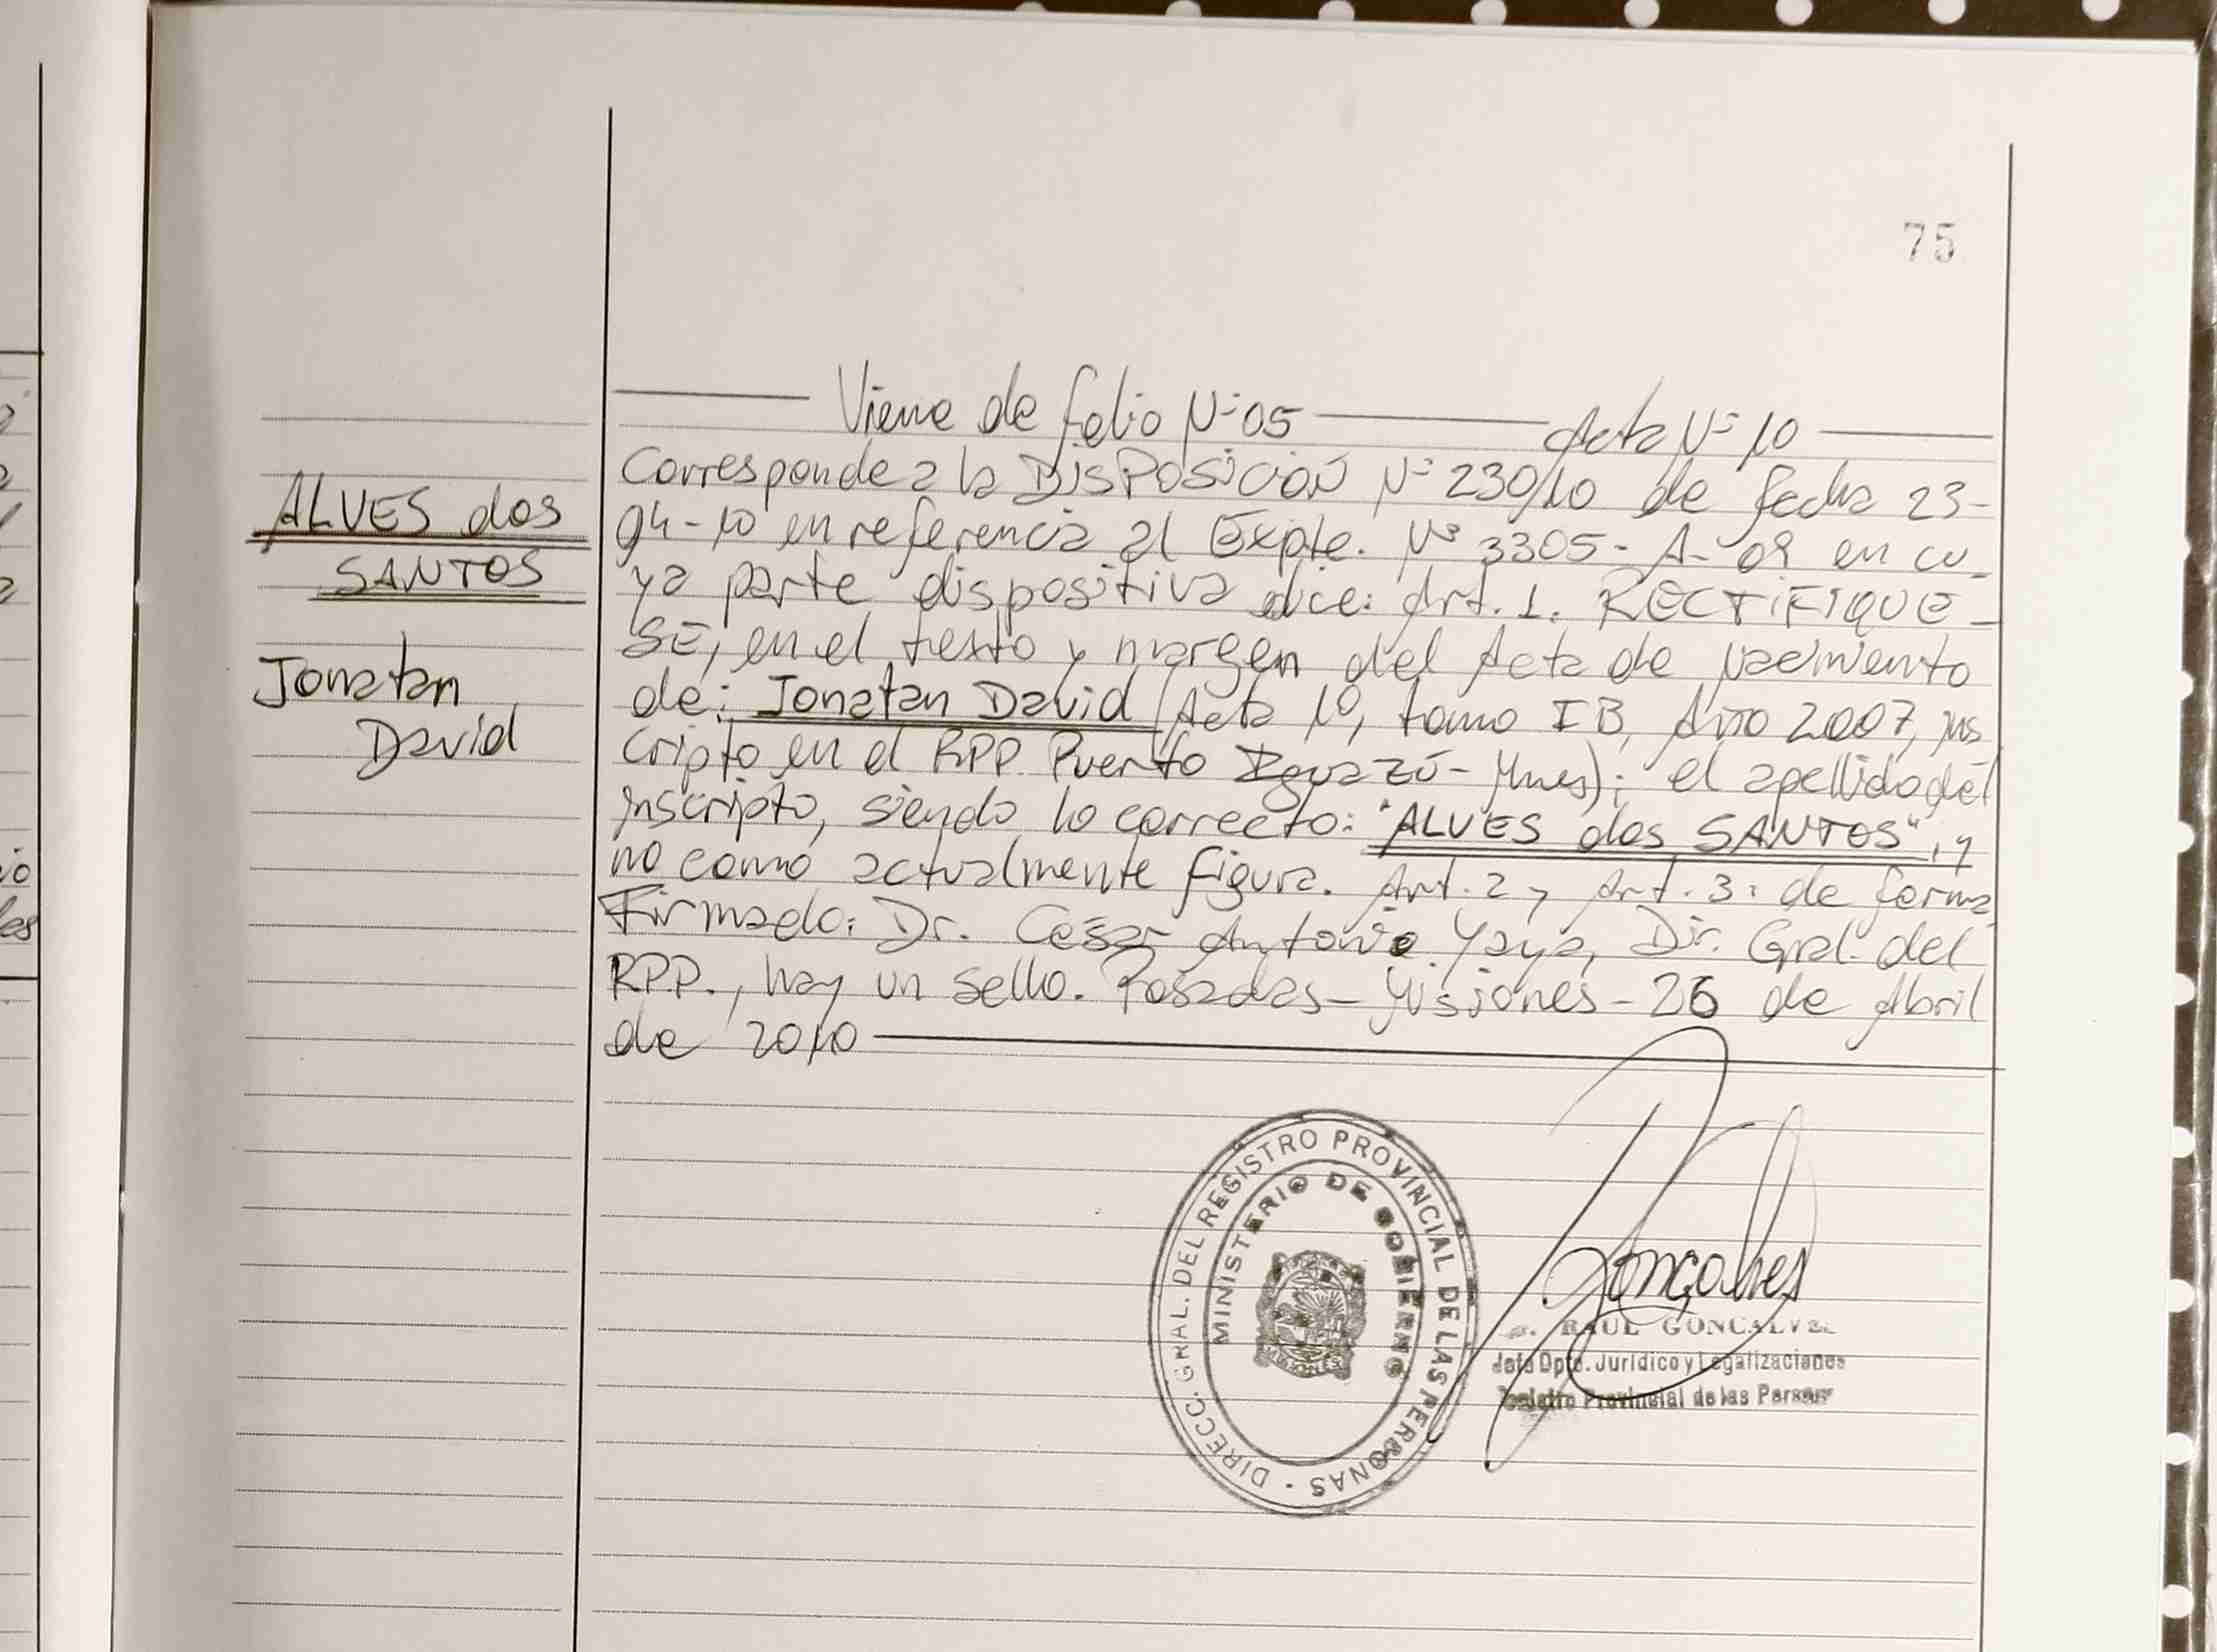 75
Viene de folio Nº 05 Acta Nº 10
Corresponde a la DISPOSICIÓN Nº 230/10 de fecha 23-
ALVES dos
04-10 en referencia al Expte. Nº 3305-A-09 en cu-
SANTOS
ya parte dispositiva dice: Art. 1. RECTIFIQUE-
SE, en el texto y margen del Acta de Nacimiento
Jonatan
de: Jonatan David (Acta 10, tomo I B, Año 2007, ins
David
cripto en el RPP. Puerto Iguazú - Mnes); el apellido del
inscripto, siendo lo correcto: "ALVES dos SANTOS", y
no como actualmente figura. Art. 2 y Art. 3: de forma
Firmado: Dr. César Antonio Yaya, Dir. Gral. del
RPP., hay un sello. Posadas - Misiones - 26 de Abril
de 2010
DIRECC. GRAL. DEL REGISTRO PROVINCIAL DE LAS PERSONAS -
MINISTERIO DE GOBIERNO
Gonçalves
RAUL GONCALVES
Jefe Dpto. Jurídico y Legalizaciones
Registro Provincial de las Personas